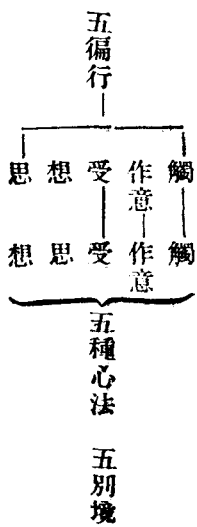 五徧行
觸 觸
作意 作意
受 受
想 思
思 想
五種心法 五別境